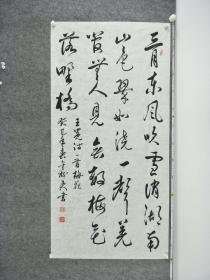 三月东风吹雪消湖南
山色翠如浇一声羌
管無人見無数梅花
落野橋
王冕诗一首梅花
癸巳年春 书